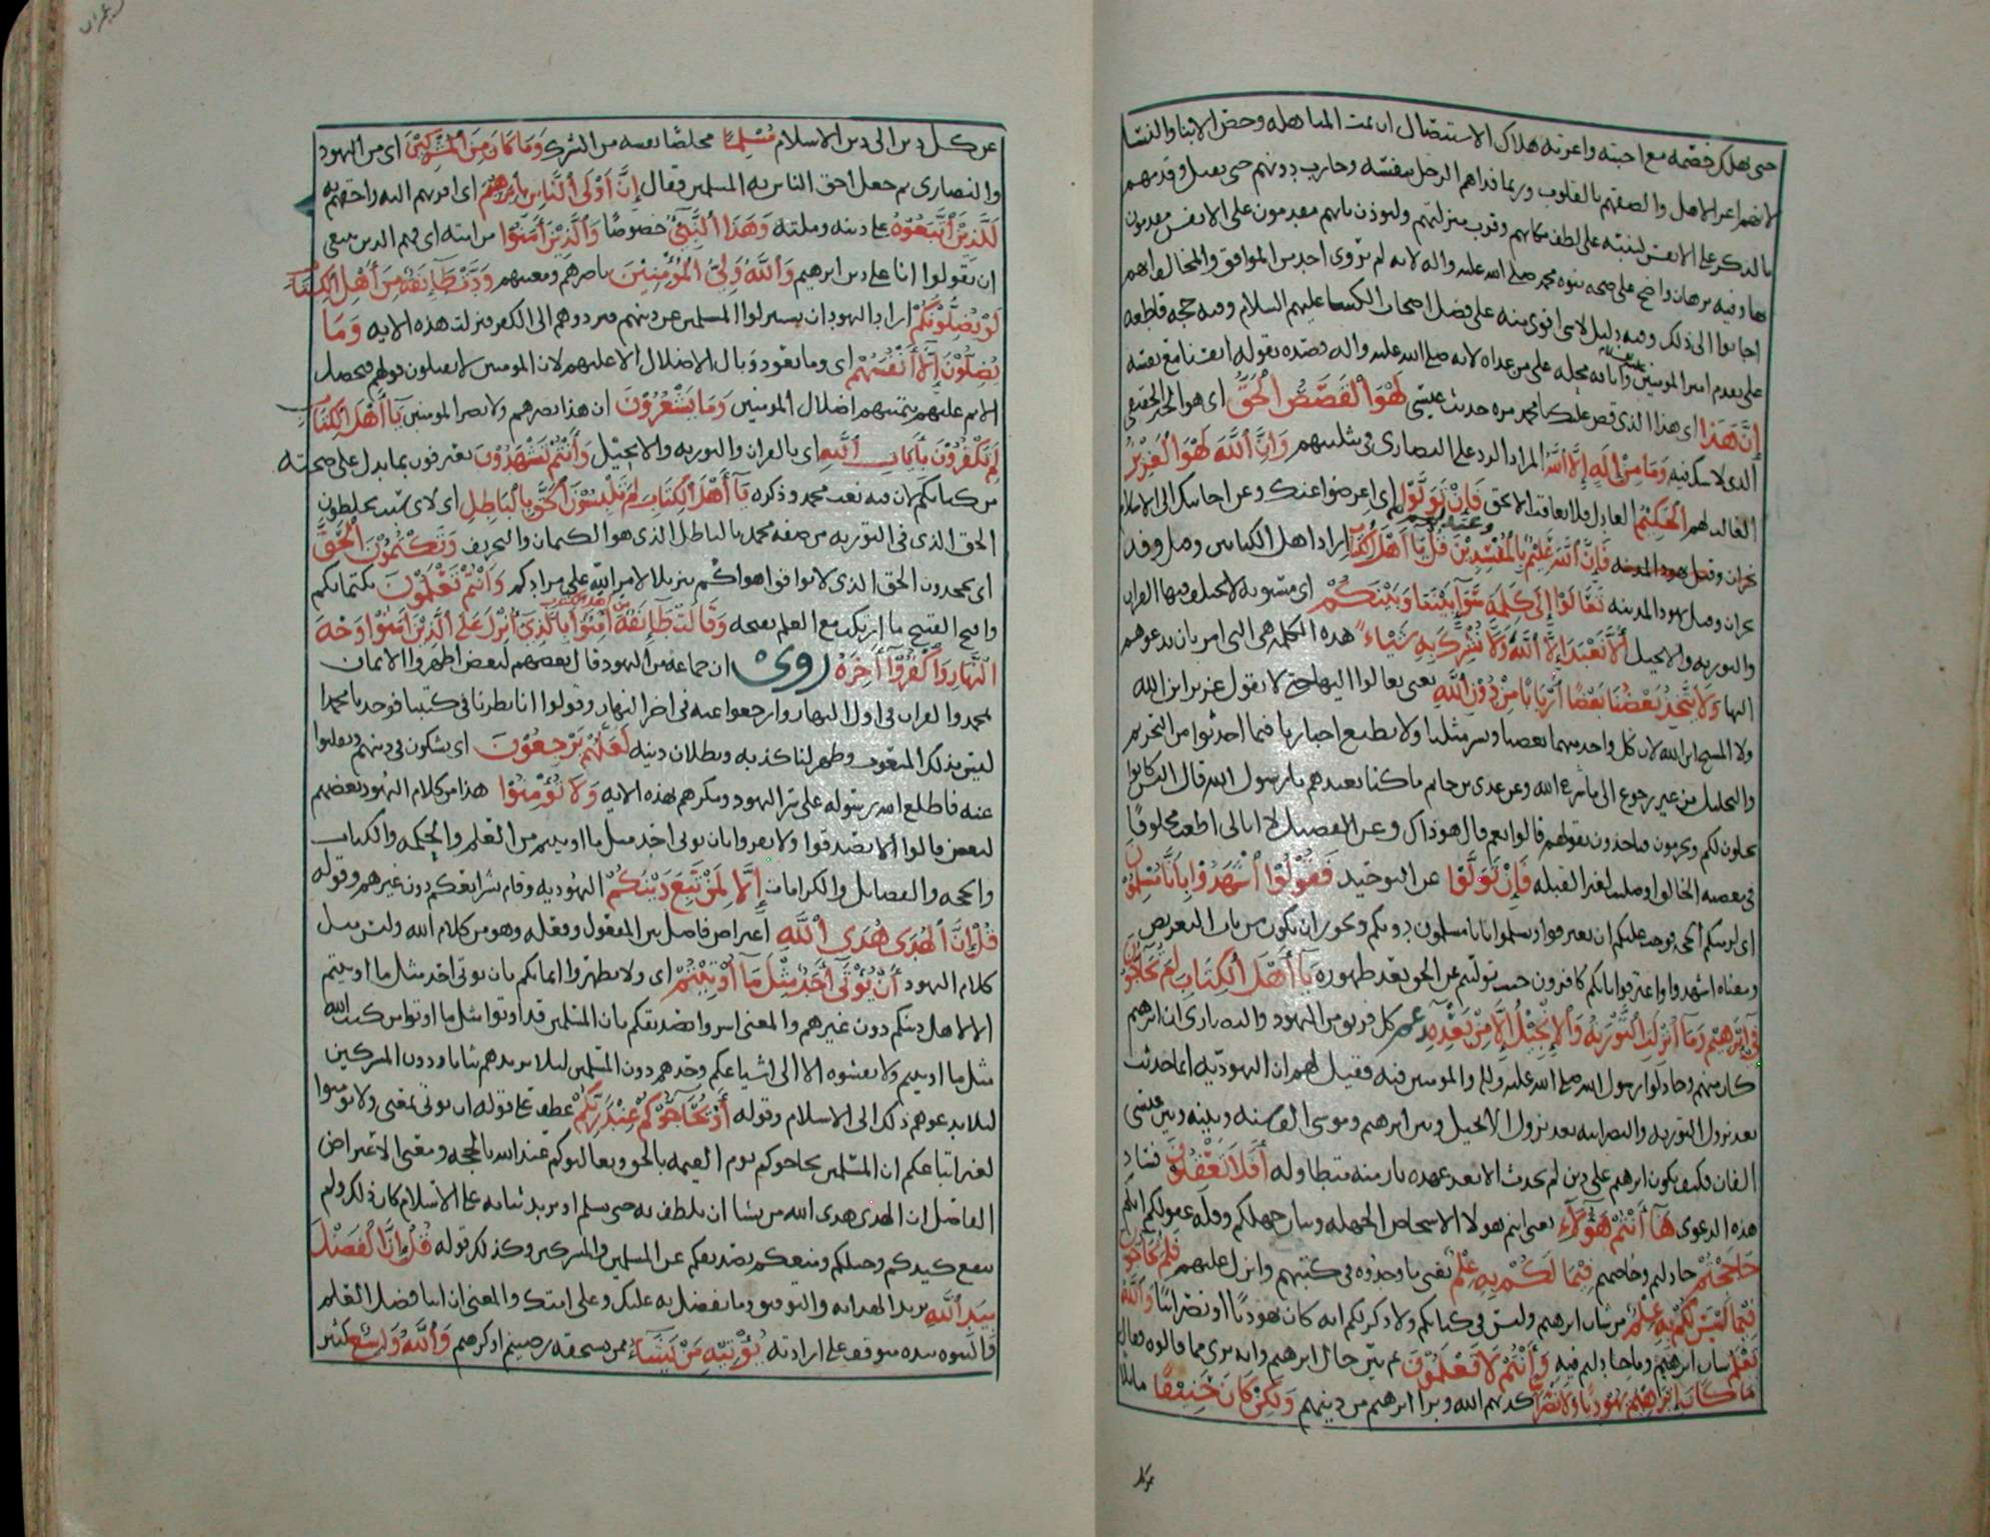 حتى يهلك خصمه مع احبته واعزته هلاك الاستيصال ان تمت المباهلة وخص الابنا والنسا
لانهم اعز الاهل والصقهم بالقلوب وربما فداهم الرجل بنفسه وحارب دونهم حتى يقتل وقدمهم
بالذكر على الانفس لينبه على لطف مكانهم وقرب منزلتهم وليوذن بانهم مقدمون على الانفس مفدون
بها وفيه برهان واضح على صحه نبوه محمد صلى الله عليه واله لانه لم يروى احد من الموافق والمخالف انهم
اجابوا الى ذلك وفيه دليل لاشى اقوى منه على فضل اصحاب الكسا عليهم السلام وفيه حجه قاطعه
على تقدم امير المومنين وابانه محله على من عداه لانه صلى الله عليه واله قصده بقوله انفسنا مع نفسه
إِنَّ هَذَا اى هذا الذى قص عليك يا محمد من حديث عيسى لَهُوَ الْقَصَصُ الْحَقُّ اى هو الحديث
الذى لا شك فيه وَمَا مِنْ إِلَهٍ إِلَّا اللَّهُ المراد الرد على النصارى فى تثليثهم وَإِنَّ اللَّهَ لَهُوَ الْعَزِيزُ
الغالب لهم الْحَكِيمُ العادل فلا يعاقب الا بحق فَإِنْ تَوَلَّوْا اى اعرضوا عنك وعن اجابتك الى الاسلام
فَإِنَّ اللَّهَ عَلِيمٌ بِالْمُفْسِدِينَ قُلْ يَا أَهْلَ الْكِتَابِ اراد اهل الكتابين وقيل وفد
نجران وقيل يهود المدينه تَعَالَوْا إِلَى كَلِمَةٍ سَوَآءٍ بَيْنَنَا وَبَيْنَكُمْ اى مستويه لا يختلف فيها القران
والتوريه والانجيل أَلَّا نَعْبُدَ إِلَّا اللَّهَ وَلَا نُشْرِكَ بِهِ شَيْئًا هذه الكلمه هى التى امر بان يدعوهم
اليها وَلَا يَتَّخِذَ بَعْضُنَا بَعْضًا أَرْبَابًا مِنْ دُونِ اللَّهِ يعنى تعالوا اليها حتى لا نقول عزير ابن الله
ولا المسيح ابن الله لان كل واحد منهما بعضنا وبشر مثلنا ولا نطيع احبارنا فيما احدثوا من التحريم
والتحليل من غير رجوع الى ما شرع الله وعن عدى بن حاتم ما كنا نعبدهم يا رسول الله قال اليس كانوا
يحلون لكم ويحرمون فتاخذون بقولهم قالوا نعم قال هو ذاك وعن الفضيل لا ابالى اطعت مخلوقًا
فى معصيه الخالق او صليت لغير القبله فَإِنْ تَوَلَّوْا عن التوحيد فَقُولُوا اشْهَدُوا بِأَنَّا مُسْلِمُونَ
اى لزمتكم الحجه فوجب عليكم ان تعترفوا وتسلموا بانا مسلمون دونكم ويجوز ان يكون من باب التعريض
ومعناه اشهدوا واعترفوا بانكم كافرون حيث توليتم عن الحق بعد ظهوره يَا أَهْلَ الْكِتَابِ لِمَ تُحَاجُّونَ
فِى إِبْرَهِيمَ وَمَا أُنْزِلَتِ التَّوْرَيهُ وَالْإِنْجِيلُ إِلَّا مِنْ بَعْدِهِ زعم كل فريق من اليهود والنصارى ان ابرهيم
كان منهم وجادلوا رسول الله صلى الله عليه واله والمومنين فيه فقيل لهم ان اليهوديه انما حدثت
بعد نزول التوريه والنصرانيه بعد نزول الانجيل وبين ابرهيم وموسى الف سنه وبينه وبين عيسى
الفان فكيف يكون ابرهيم على دين لم يحدث الا بعد عهده بازمنه متطاوله أَفَلَا تَعْقِلُونَ فساد
هذه الدعوى هَا أَنْتُمْ هَؤُلَآءِ يعنى انتم هولا الاشخاص الجهله وبيان جهلكم وقله عقولكم انكم
حَاجَجْتُمْ جادلتم وخاصمتم فِيمَا لَكُمْ بِهِ عِلْمٌ يعنى ما وجدوه فى كتبهم وانزل عليهم فَلِمَ تُحَاجُّونَ
فِيمَا لَيْسَ لَكُمْ بِهِ عِلْمٌ من شان ابرهيم وليس فى كتابكم ولا ذكر لكم انه كان يهوديًا او نصرانيًا وَاللَّهُ
يَعْلَمُ شان ابرهيم وما جادلتم فيه وَأَنْتُمْ لَا تَعْلَمُونَ ثم بين حال ابرهيم وانه برى مما قالوه فقال
مَا كَانَ إِبْرَهِيمُ يَهُودِيًّا وَلَا نَصْرَانِيًّا كذبهم الله وبرا ابرهيم من دينهم وَلَكِنْ كَانَ حَنِيفًا مايلا
عن كل دين الى دين الاسلام مُسْلِمًا مخلصًا نفسه من الشرك وَمَا كَانَ مِنَ الْمُشْرِكِينَ اى من اليهود
والنصارى ثم جعل احق الناس به المسلمين فقال إِنَّ أَوْلَى النَّاسِ بِإِبْرَهِيمَ اى اقربهم اليه واخصهم به
لَلَّذِينَ اتَّبَعُوهُ على دينه وملته وَهَذَا النَّبِيُّ خصوصًا وَالَّذِينَ آمَنُوا من امته اى فهم الذين ينبغى
ان يقولوا انا على دين ابرهيم وَاللَّهُ وَلِيُّ الْمُؤْمِنِينَ ناصرهم ومعينهم وَدَّتْ طَآئِفَةٌ مِنْ أَهْلِ الْكِتَابِ
لَوْ يُضِلُّونَكُمْ اراد اليهود ان يستزلوا المسلمين عن دينهم ويردوهم الى الكفر فنزلت هذه الايه وَمَا
يُضِلُّونَ إِلَّا أَنْفُسَهُمْ اى وما يعود وبال الاضلال الا عليهم لان المومنين لا يقبلون قولهم فيحصل
الاثم عليهم بتمنيهم اضلال المومنين وَمَا يَشْعُرُونَ ان هذا يضرهم ولا يضر المومنين يَا أَهْلَ الْكِتَابِ
لِمَ تَكْفُرُونَ بِآيَاتِ اللَّهِ اى بالقران والتوريه والانجيل وَأَنْتُمْ تَشْهَدُونَ تعترفون بما يدل على صحته
من كتابكم لان فيه نعت محمد وذكره يَا أَهْلَ الْكِتَابِ لِمَ تَلْبِسُونَ الْحَقَّ بِالْبَاطِلِ اى لاى شى تخلطون
الحق الذى فى التوريه من صفه محمد بالباطل الذى هو الكتمان والتحريف وَتَكْتُمُونَ الْحَقَّ
اى تجحدون الحق الذى لا يوافق اهواكم تنزيلا لامر الله على مرادكم وَأَنْتُمْ تَعْلَمُونَ بكتمانكم
واقبح القبيح ما ارتكب مع العلم بقبحه وَقَالَتْ طَآئِفَةٌ مِنْ أَهْلِ الْكِتَابِ آمِنُوا بِالَّذِى أُنْزِلَ عَلَى الَّذِينَ آمَنُوا وَجْهَ
النَّهَارِ وَاكْفُرُوآ آخِرَهُ روى ان جماعه من اليهود قال بعضهم لبعض اظهروا الايمان
بمحمد والقران فى اول النهار وارجعوا عنه فى اخر النهار وقولوا انا نظرنا فى كتبنا فوجدنا محمدا
ليس بذلك المنعوت وظهر لنا كذبه وبطلان دينه لَعَلَّهُمْ يَرْجِعُونَ اى يشكون فى دينهم وينقلبوا
عنه فاطلع الله رسوله على سر اليهود ومكرهم بهذه الايه وَلَا تُؤْمِنُوا هذا من كلام اليهود بعضهم
لبعض قالوا الا تصدقوا ولا تقروا بان يوتى احد مثل ما اوتيتم من العلم والحكمه والكتاب
والحجه والفضايل والكرامات إِلَّا لِمَنْ تَبِعَ دِينَكُمْ اليهوديه وقام بشرايعكم دون غيرهم وقوله
قُلْ إِنَّ الْهُدَى هُدَى اللَّهِ اعتراض فاصل بين المفعول وفعله وهو من كلام الله وليس من
كلام اليهود أَنْ يُؤْتَى أَحَدٌ مِثْلَ مَا أُوتِيتُمْ اى ولا تظهروا ايمانكم بان يوتى احد مثل ما اوتيتم
الا لاهل دينكم دون غيرهم والمعنى اسروا تصديقكم بان المسلمين قد اوتوا مثل ما اوتوا من كتب الله
مثل ما اوتيتم ولا تفشوه الا الى اشياعكم وحدهم دون المسلمين ليلا يزيدهم ثباتا ودون المشركين
ليلا يدعوهم ذلك الى الاسلام وقوله أَوْ يُحَآجُّوكُمْ عِنْدَ رَبِّكُمْ عطف على قوله ان يوتى بمعنى ولا تومنوا
لغير اتباعكم ان المسلمين يحاجوكم يوم القيمه بالحق ويغالبوكم عند الله بالحجه ومعنى الاعتراض
الفاصل ان الهدى هدى الله من يشا ان يلطف به حتى يسلم او يزيد ثباته على الاسلام كان ذلك ولم
ينفع كيدكم وحيلكم ومنعكم تصديقكم عن المسلمين والمشركين وكذلك قوله قُلْ إِنَّ الْفَضْلَ
بِيَدِ اللَّهِ يريد الهدايه والتوفيق وما يفضل به عليك وعلى امتك والمعنى ان ايتا فضل العلم
والنبوه بيده موقوف على ارادته يُؤْتِيهِ مَنْ يَشَآءُ ممن يستحقه رضيتم او كرهتم وَاللَّهُ وَاسِعٌ كثير